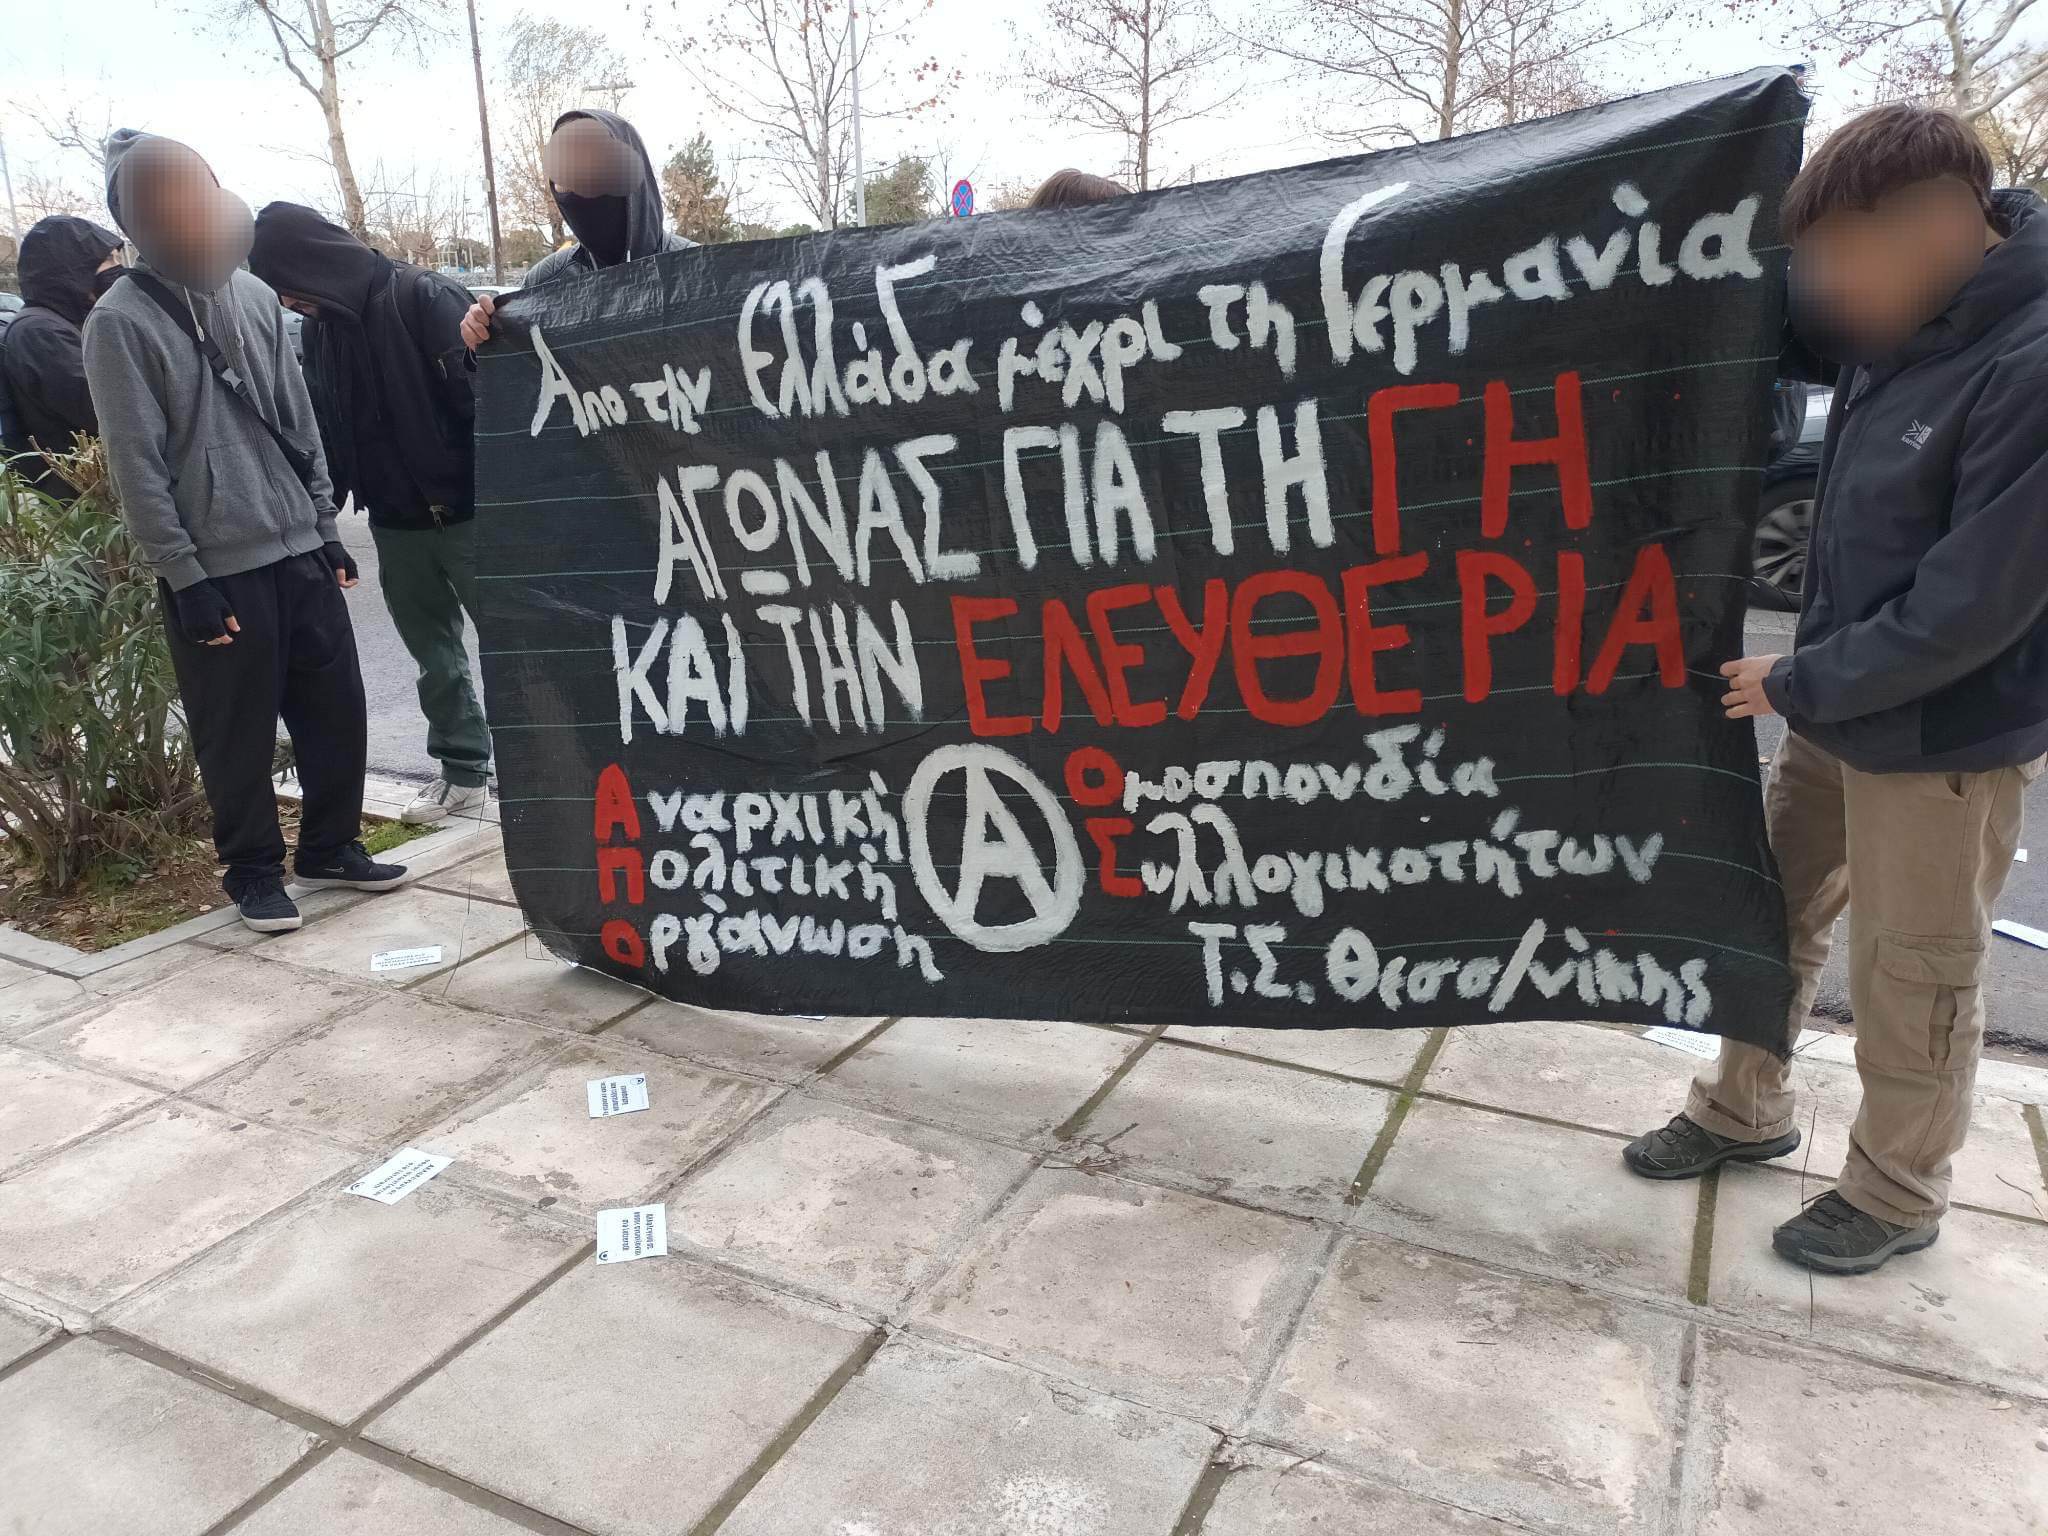 Απο την Ελλάδα μέχρι τη Γερμανία
ΑΓΩΝΑΣ ΓΙΑ ΤΗ ΓΗ
ΚΑΙ ΤΗΝ ΕΛΕΥΘΕΡΙΑ
Αναρχική
Πολιτική
Οργάνωση
Α
Ομοσπονδία
Συλλογικοτήτων
Τ.Σ. Θεσσ/νίκης